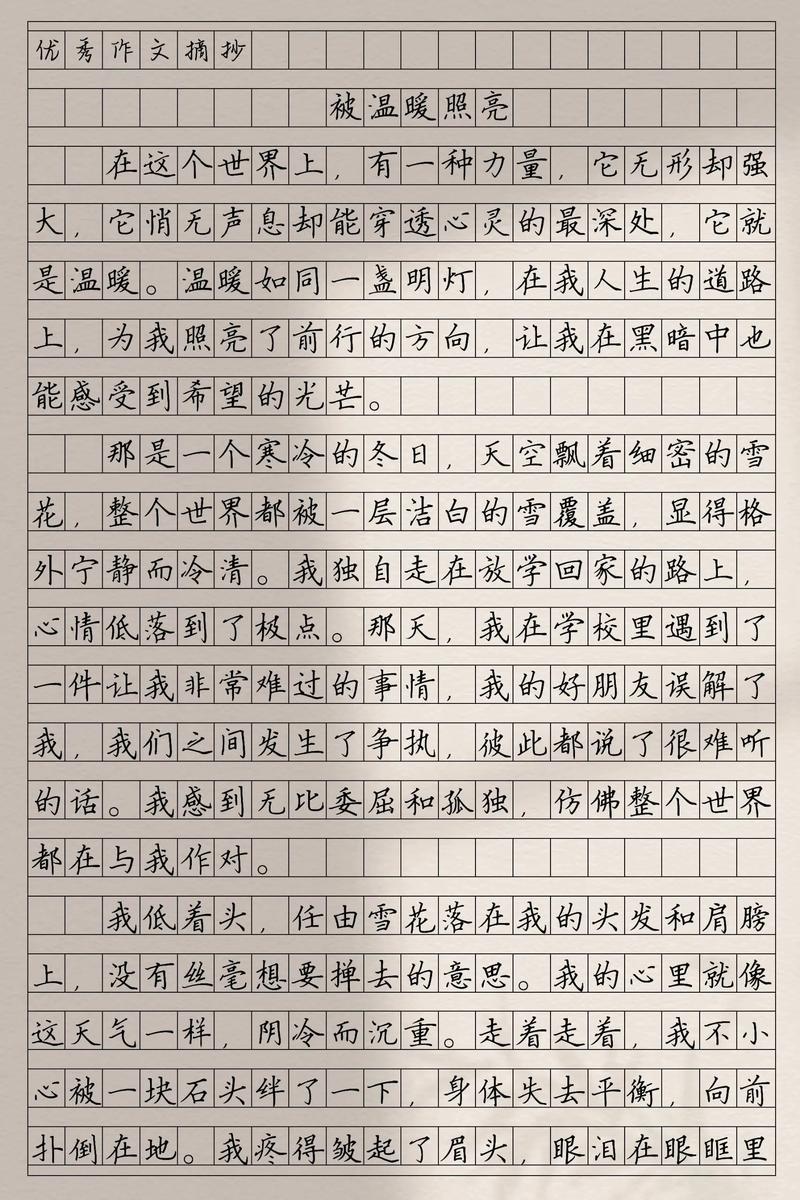 优秀作文摘抄
被温暖照亮
在这个世界上，有一种力量，它无形却强
大，它悄无声息却能穿透心灵的最深处，它就
是温暖。温暖如同一盏明灯，在我人生的道路
上，为我照亮了前行的方向，让我在黑暗中也
能感受到希望的光芒。
那是一个寒冷的冬日，天空飘着细密的雪
花，整个世界都被一层洁白的雪覆盖，显得格
外宁静而冷清。我独自走在放学回家的路上，
心情低落到了极点。那天，我在学校里遇到了
一件让我非常难过的事情，我的好朋友误解了
我，我们之间发生了争执，彼此都说了很难听
的话。我感到无比委屈和孤独，仿佛整个世界
都在与我作对。
我低着头，任由雪花落在我的头发和肩膀
上，没有丝毫想要掸去的意思。我的心里就像
这天气一样，阴冷而沉重。走着走着，我不小
心被一块石头绊了一下，身体失去平衡，向前
扑倒在地。我疼得皱起了眉头，眼泪在眼眶里